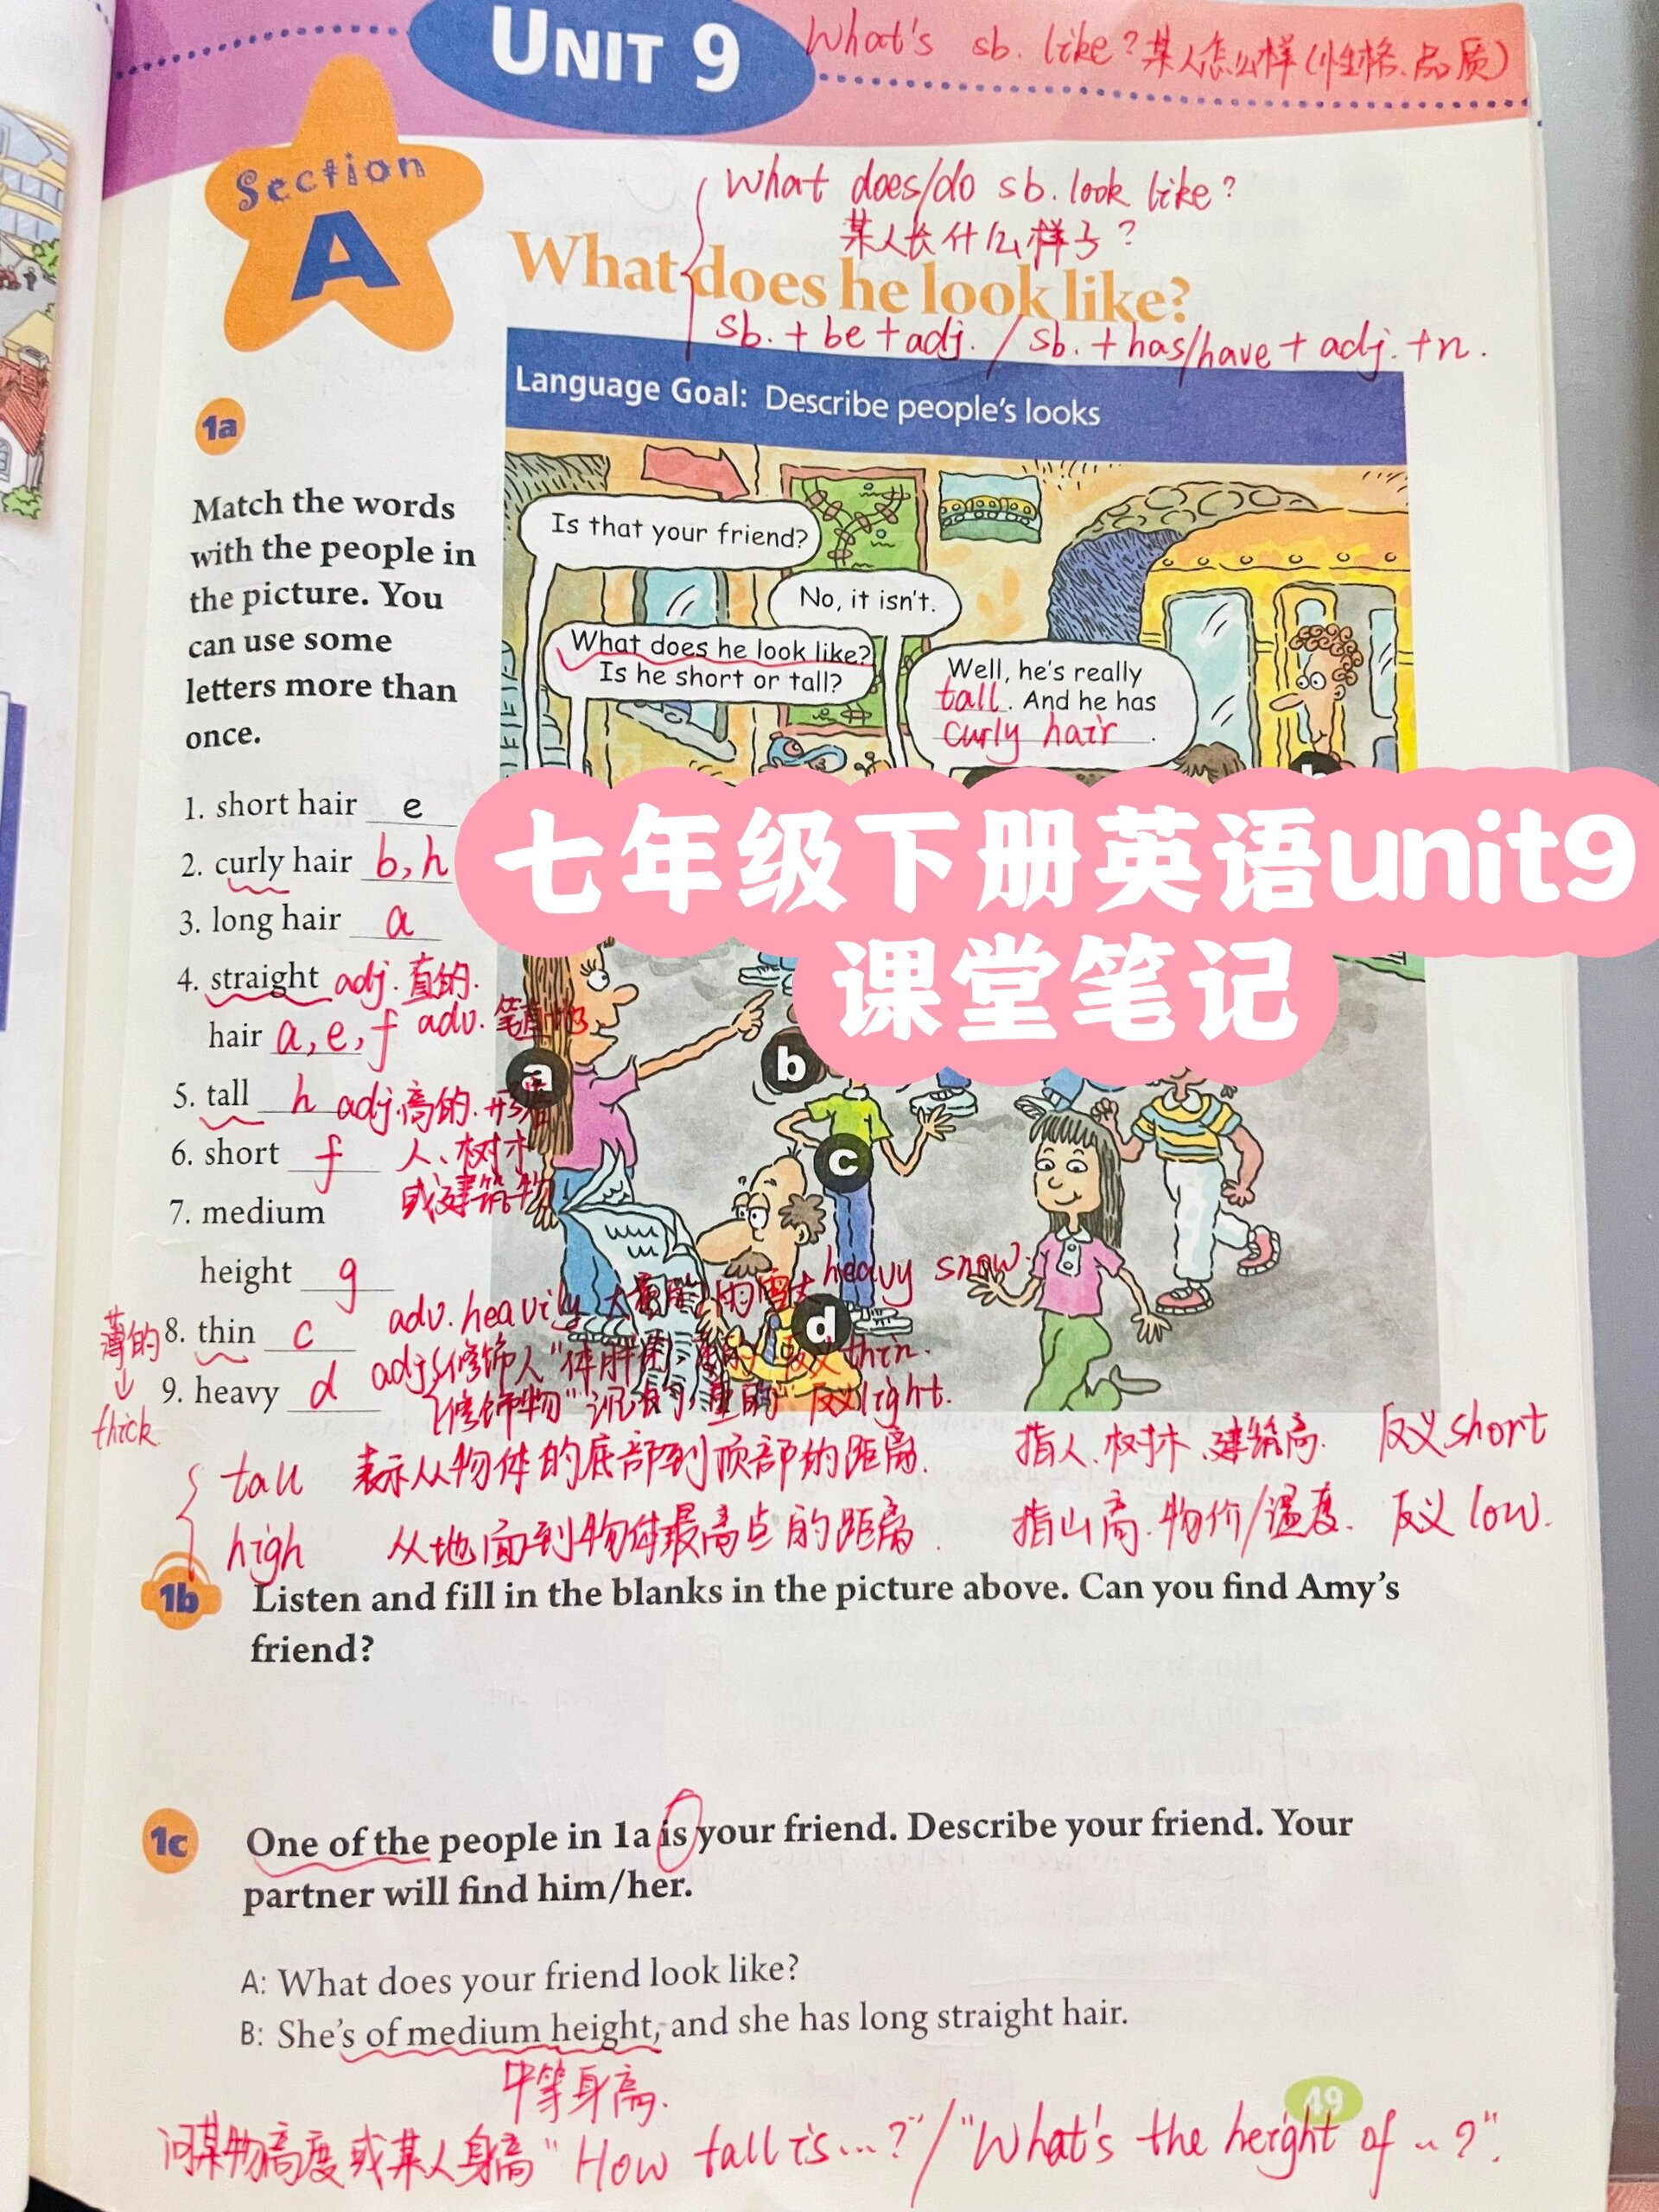 UNIT 9
What's sb. like? 某人怎么样(性格、品质)
Section
A
What does/do sb. look like?
某人长什么样子?
What does he look like?
sb. + be + adj. / sb. + has/have + adj. + n.
Language Goal: Describe people's looks
1a
Match the words
with the people in
the picture. You
can use some
letters more than
once.
Is that your friend?
No, it isn't.
What does he look like?
Is he short or tall?
Well, he's really
tall. And he has
curly hair.
七年级下册英语unit9
课堂笔记
1. short hair e
2. curly hair b, h
3. long hair a
4. straight adj. 直的.
hair a, e, f adv. 笔直地
5. tall h adj. 高的.
6. short f 人、树木
或建筑物
7. medium
height g
薄的 8. thin c
adv. heavily
heavy snow.
↓ 9. heavy d
adj. 修饰人"体胖的, thin.
thick.
修饰物" 重的" 反义light.
a
b
c
d
tall 表示从物体的底部到顶部的距离. 指人、树林、建筑高. 反义short
high 从地面到物体最高点的距离. 指山高. 物价/温度. 反义 low.
1b Listen and fill in the blanks in the picture above. Can you find Amy's
friend?
1c One of the people in 1a is your friend. Describe your friend. Your
partner will find him/her.
A: What does your friend look like?
B: She's of medium height, and she has long straight hair.
中等身高.
49
问某物高度或某人身高 "How tall is...?"/"What's the height of ..?".